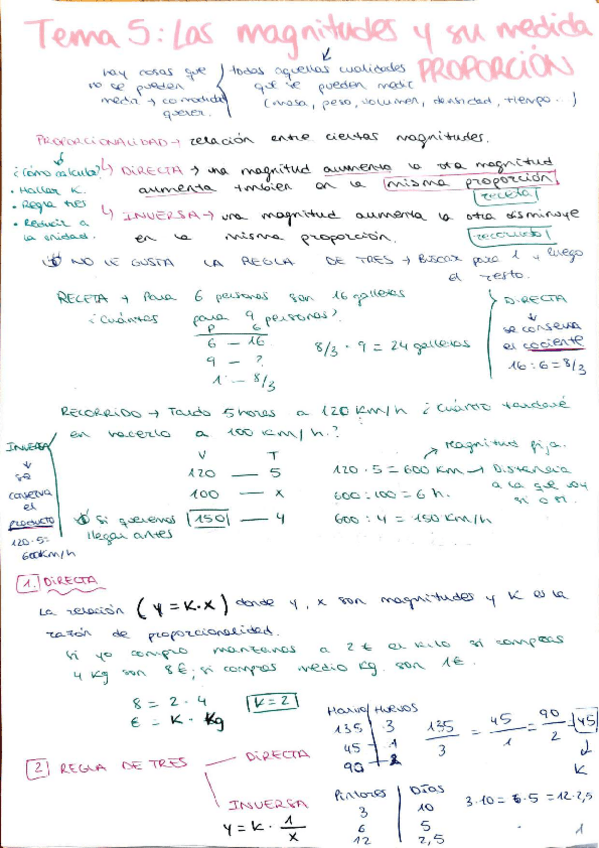 Tema 5: Las magnitudes y su medida
PROPORCIÓN
hay cosas que no se pueden medir → comodidad, querer.
todas aquellas cualidades que se pueden medir (masa, peso, volumen, densidad, tiempo...)
PROPORCIONALIDAD → relación entre ciertas magnitudes.
¿Cómo calcula?
• Hallar K.
• Regla tres
• Reducir a la unidad.
↳ DIRECTA → una magnitud aumenta la otra magnitud
aumenta también en la misma proporción
receta
↳ INVERSA → una magnitud aumenta la otra disminuye
en la misma proporción.
recorrido
NO LE GUSTA LA REGLA DE TRES → Buscar para 1 y luego
el resto.
RECETA → Para 6 personas son 16 galletas
¿Cuántas para 9 personas?
P G
6 – 16
9 – ?
1 – 8/3
8/3 · 9 = 24 galletas
DIRECTA
↓
se conserva
el cociente
16 : 6 = 8/3
RECORRIDO → Tardo 5 horas a 120 km/h ¿Cuánto tardaré
en hacerlo a 100 km/h.?
INVERSA
↓
se
conserva
el
producto
120·5=
600km/h
V T
120 — 5
100 — x
Si queremos llegar antes
150 — 4
Magnitud fija.
120 · 5 = 600 km → Distancia
a la que voy
600 : 100 = 6 h.
600 : 4 = 150 km/h
1. DIRECTA
La relación (y = K · x) donde y, x son magnitudes y K es la
razón de proporcionalidad.
Si yo compro manzanas a 2 € el kilo si compras
4 kg son 8€; si compras medio kg. son 1€.
8 = 2 · 4
K = 2
€ = K · kg
Harina Huevos
135 3
45 1
90 2
135/3 = 45/1 = 90/2 = 45
↓
K
2 REGLA DE TRES
DIRECTA
INVERSA
y = K · 1/x
Pintores Días
3 10
6 5
12 2,5
3·10 = 6·5 = 12·2,5
1